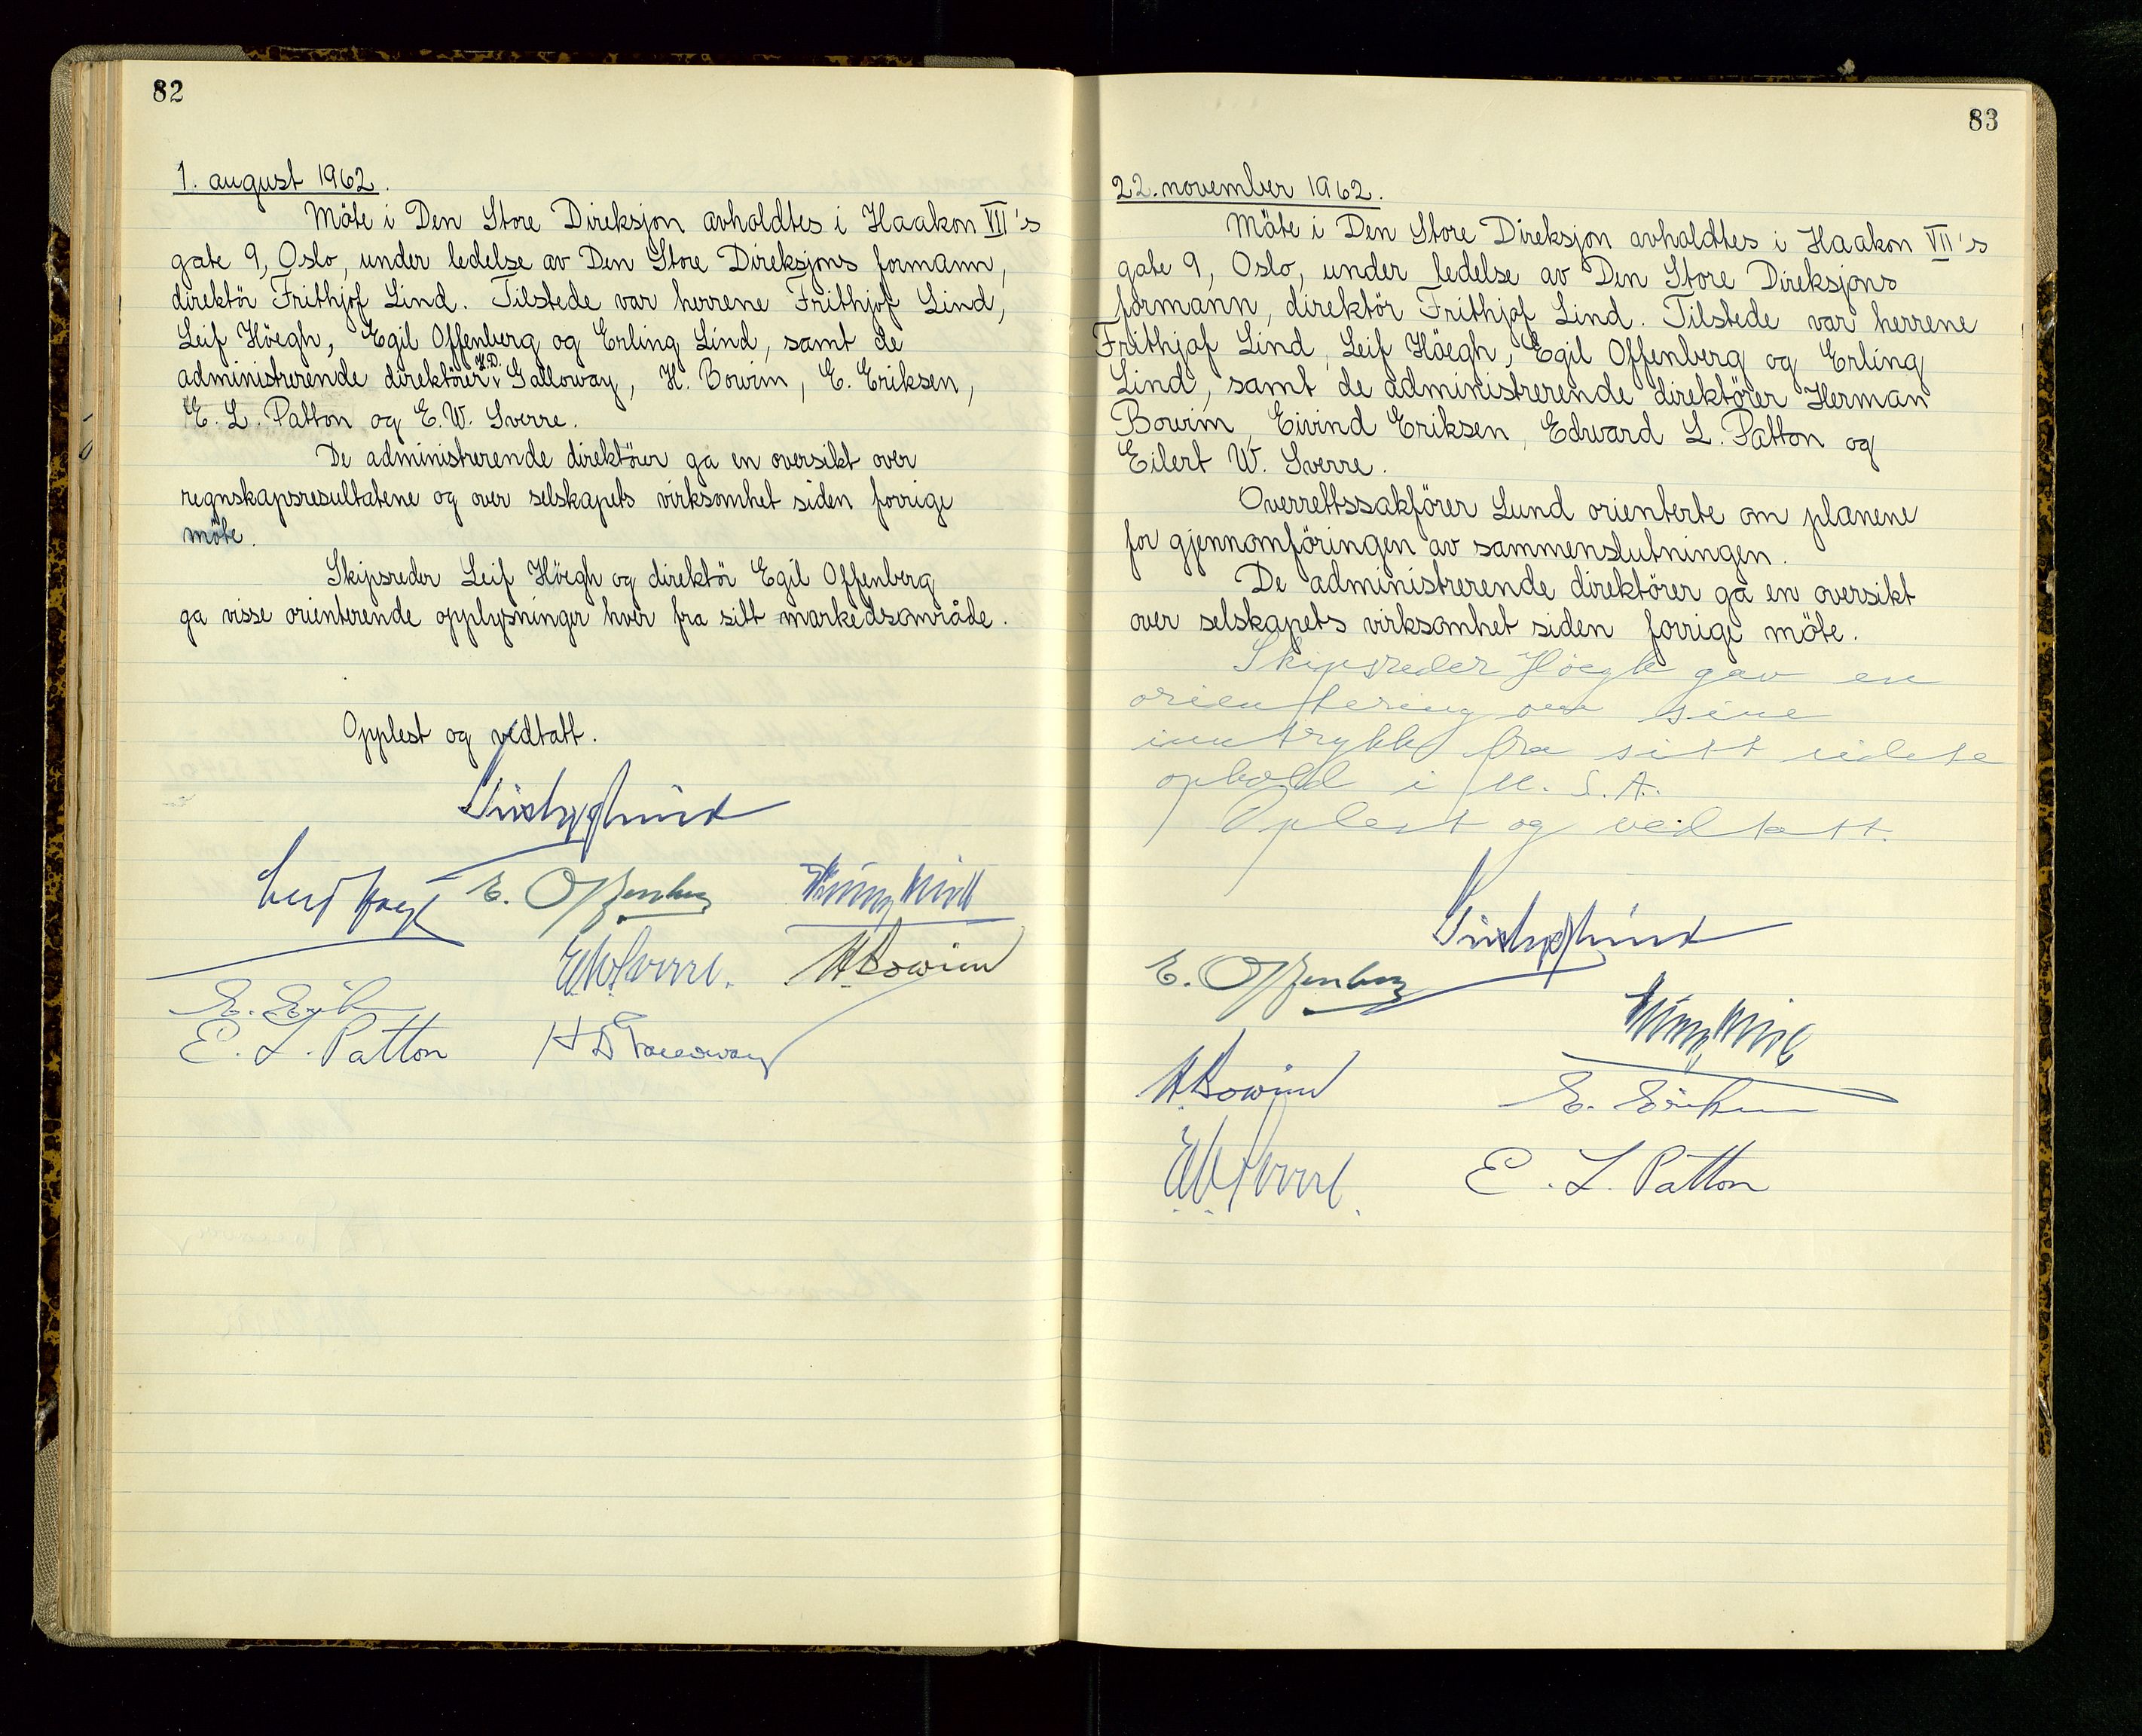 82
1. august 1962.
Möte i Den Store Direksjon avholdtes i Haakon VII's
gate 9, Oslo, under ledelse av Den Store Direksjons formann,
direktör Frithjof Lind. Tilstede var herrene Frithjof Lind,
Leif Höegh, Egil Offenberg og Erling Lind, samt de
administrerende direktörer H.D. Galloway, H. Bowim, E. Eriksen,
E. L. Patton og E. W. Sverre.
De administrerende direktörer ga en oversikt over
regnskapsresultatene og over selskapets virksomhet siden forrige
möte.
Skipsreder Leif Höegh og direktör Egil Offenberg
ga visse orienterende opplysninger hver fra sitt markedsområde.
Opplest og vedtatt.
Frithjof Lind
Leif Höegh E. Offenberg Erling Lind
EWSverre. HBowim
E. Eriksen
E. L. Patton HDGalloway
83
22. november 1962.
Möte i Den Store Direksjon avholdtes i Haakon VII's
gate 9, Oslo, under ledelse av Den Store Direksjons
formann, direktör Frithjof Lind. Tilstede var herrene
Frithjof Lind, Leif Höegh, Egil Offenberg og Erling
Lind, samt de administrerende direktörer Herman
Bowim, Eivind Eriksen, Edward L. Patton og
Eilert W. Sverre.
Overrettssakförer Lund orienterte om planene
for gjennomföringen av sammenslutningen.
De administrerende direktörer ga en oversikt
over selskapets virksomhet siden forrige möte.
Skipsreder Höegh gav en
orientering om sine
inntrykk fra sitt sidste
ophold i U.S.A.
Oplest og vedtatt.
Frithjof Lind
E. Offenberg
Erling Lind
HBowim
E. Eriksen
EWSverre.
E. L. Patton